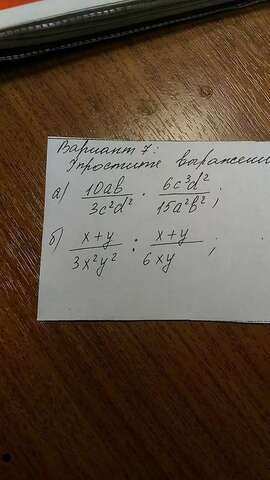 Вариант 7:
Упростите выражени
а) 10ab/3c²d² · 6c³d²/15a²b² ;
б) x+y/3x²y² : x+y/6xy ;